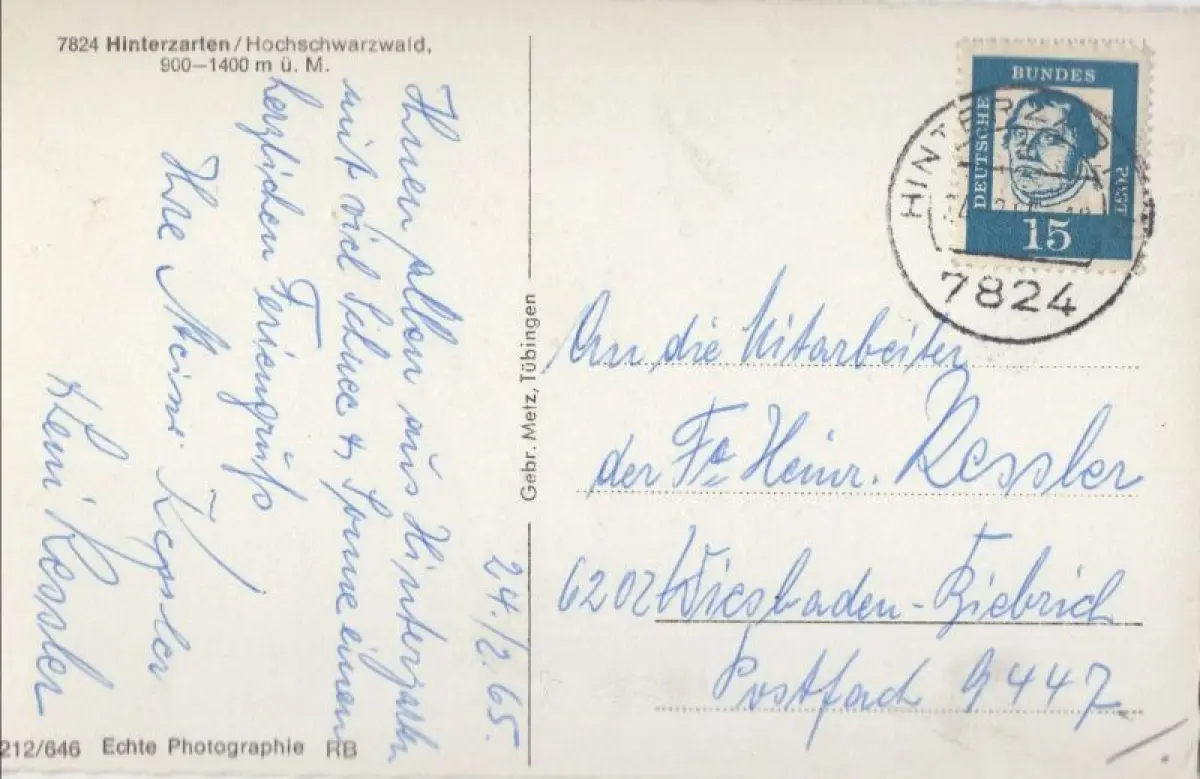 7824 Hinterzarten/Hochschwarzwald,
900—1400 m ü. M.
24./2. 65.
Ihnen allen aus Hinterzarten
mit viel Schnee & Sonne einen
herzlichen Feriengruß
Ihre Kessler
Heini Kessler
212/646 Echte Photographie RB
Gebr. Metz, Tübingen
DEUTSCHE BUNDES POST
15
HINTERZARTEN
7824
An die Mitarbeiter
der Fa Heinr. Kessler
6202 Wiesbaden-Biebrich
Postfach 9447